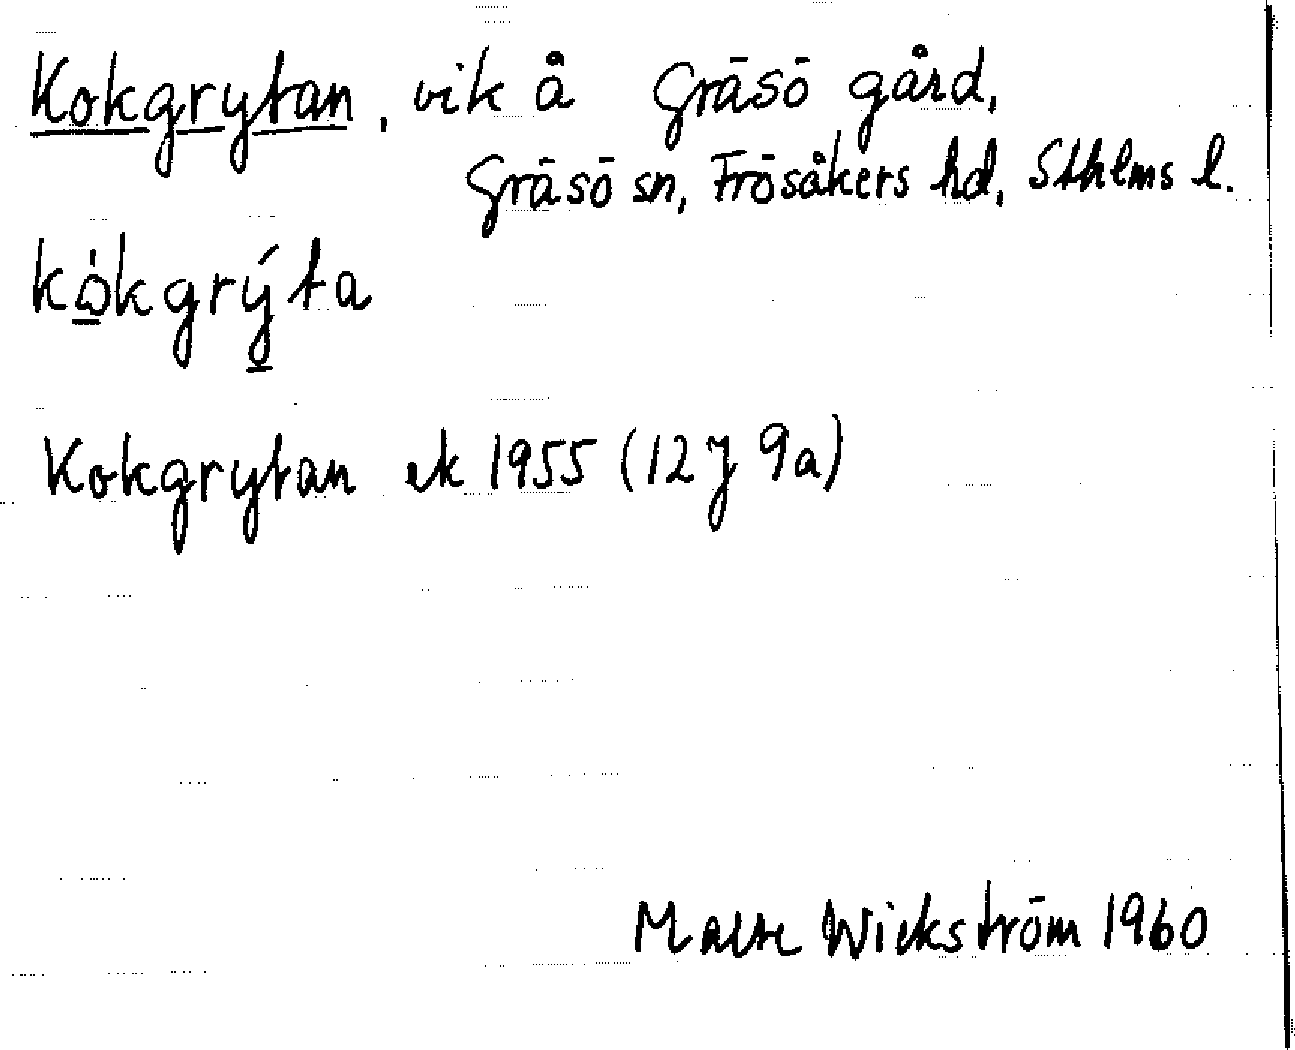 Kokgrytan, vik å Gräsö gård,
Gräsö sn, Frösåkers hd, Sthlms l.
kò̱kgrý̱ta
Kokgrytan ek 1955 (12J 9a)
Malte Wickström 1960